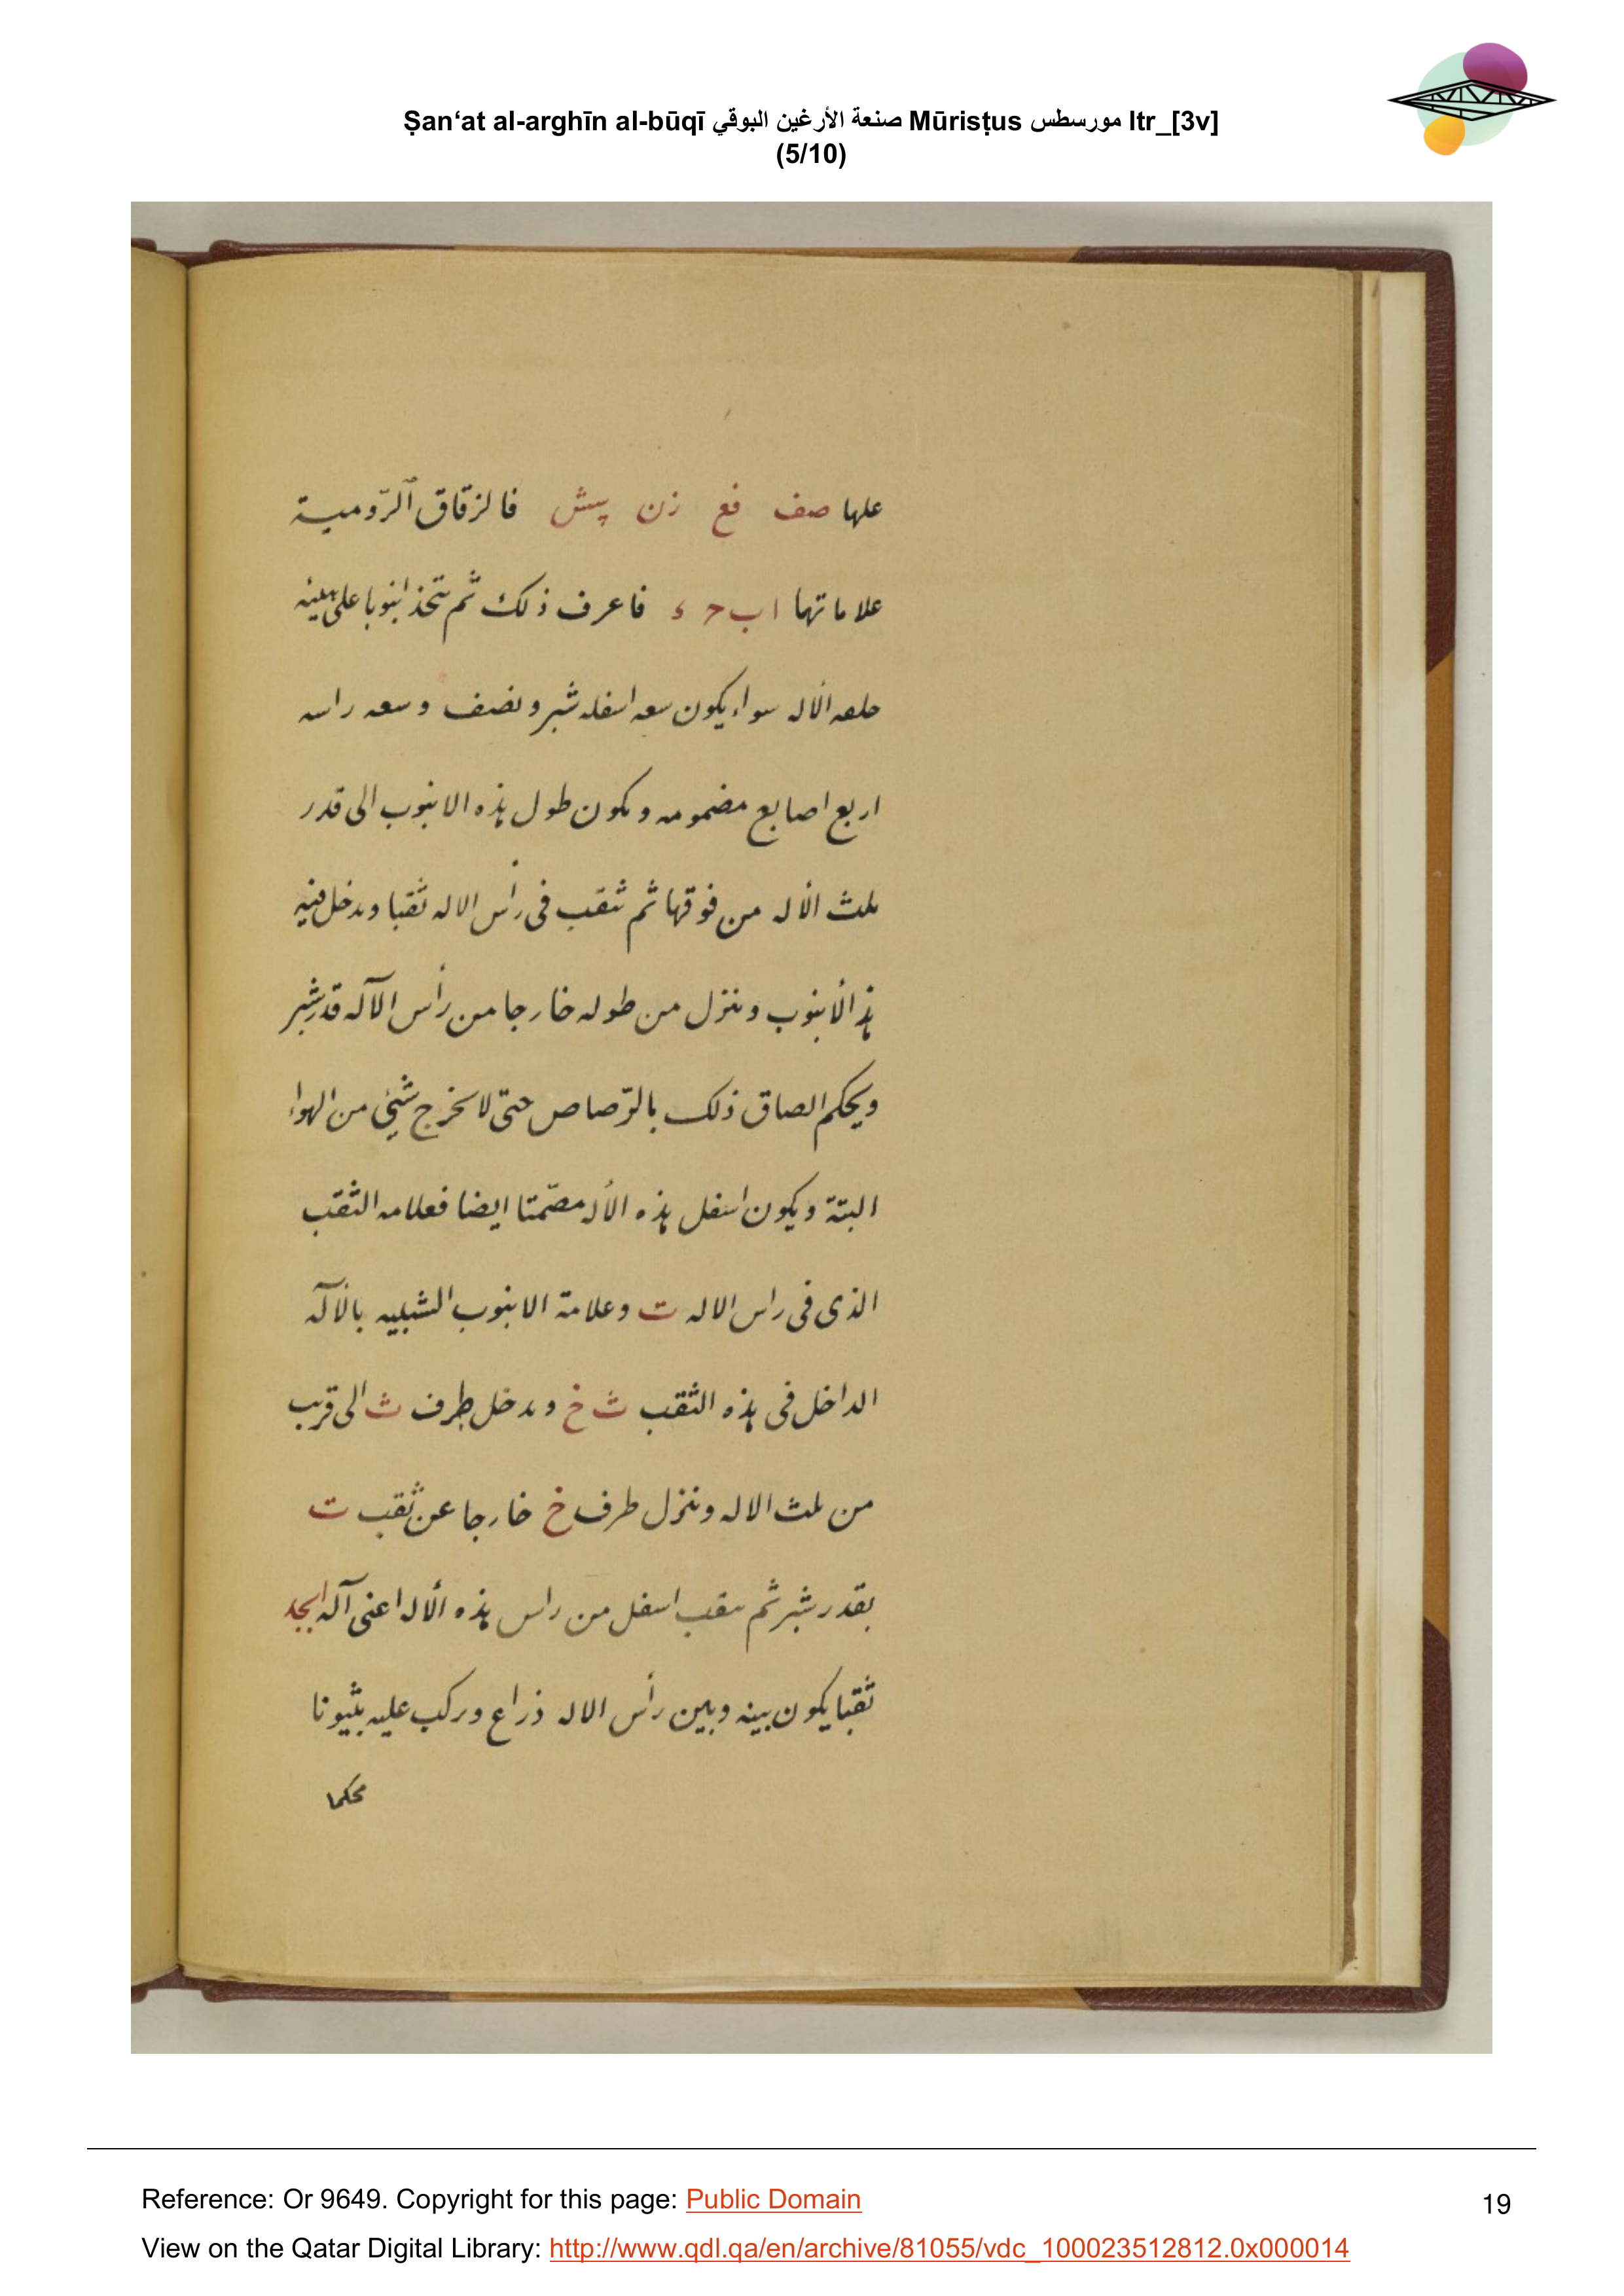 Ṣan‘at al-arghīn al-būqī صنعة الأرغين البوقي Mūrisṭus مورسطس ltr_[3v]
(5/10)
علها صف فع زن پیش فالزقاق الرّومية
علاماتها ا ب ح ء فاعرف ذلك ثم تتخذ انبوبا على هيئه
حلعه الأله سواء يكون سعه اسفله شبر ونصف وسعه راسه
اربع اصابع مضمومه ويكون طول هذه الانبوب الى قدر
ثلث الأله من فوقها ثم تثقب فى رأس الاله ثقبا ويدخل فيه
هذ الأنبوب وينزل من طوله خارجا من رأس الآله قدر شبر
ويحكم الصاق ذلك بالرّصاص حتى لا يخرج شئ من الهواء
البتة ويكون اسفل هذه الأله مصّمتا ايضا فعلامه الثقب
الذى فى راس الاله ت وعلامة الانبوب الشبيه بالآله
الداخل فى هذه الثقب ث خ ويدخل طرف ث الى قريب
من ثلث الاله وينزل طرف خ خارجا عن ثقب ت
بقدر شبر ثم يثقب اسفل من راس هذه الأله اعنى آله ابجد
ثقبا يكون بينه وبين رأس الاله ذراع وركب عليه بثيونا
محكما
Reference: Or 9649. Copyright for this page: Public Domain
19
View on the Qatar Digital Library: http://www.qdl.qa/en/archive/81055/vdc_100023512812.0x000014